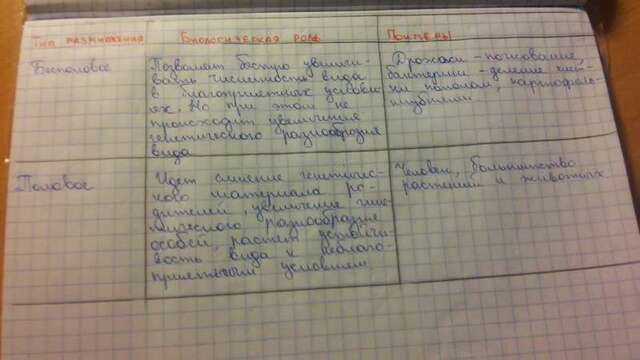 Тип размножения
Биологическая роль
Примеры
Бесполовое
Позволяет быстро увеличи-
вать численность вида
в благоприятных услови-
ях. Но при этом не
происходит увеличения
генетического разнообразия
вида
Дрожжи - почкование,
бактерии - деление клет-
ки пополам, картофель-
Половое
Идет смешение генетичес-
кого материала ро-
дителей, увеличение гене-
тического разнообразия
особей, растет устойчи-
вость вида к неблаго-
приятным условиям
Человек, большинство
растений и животных